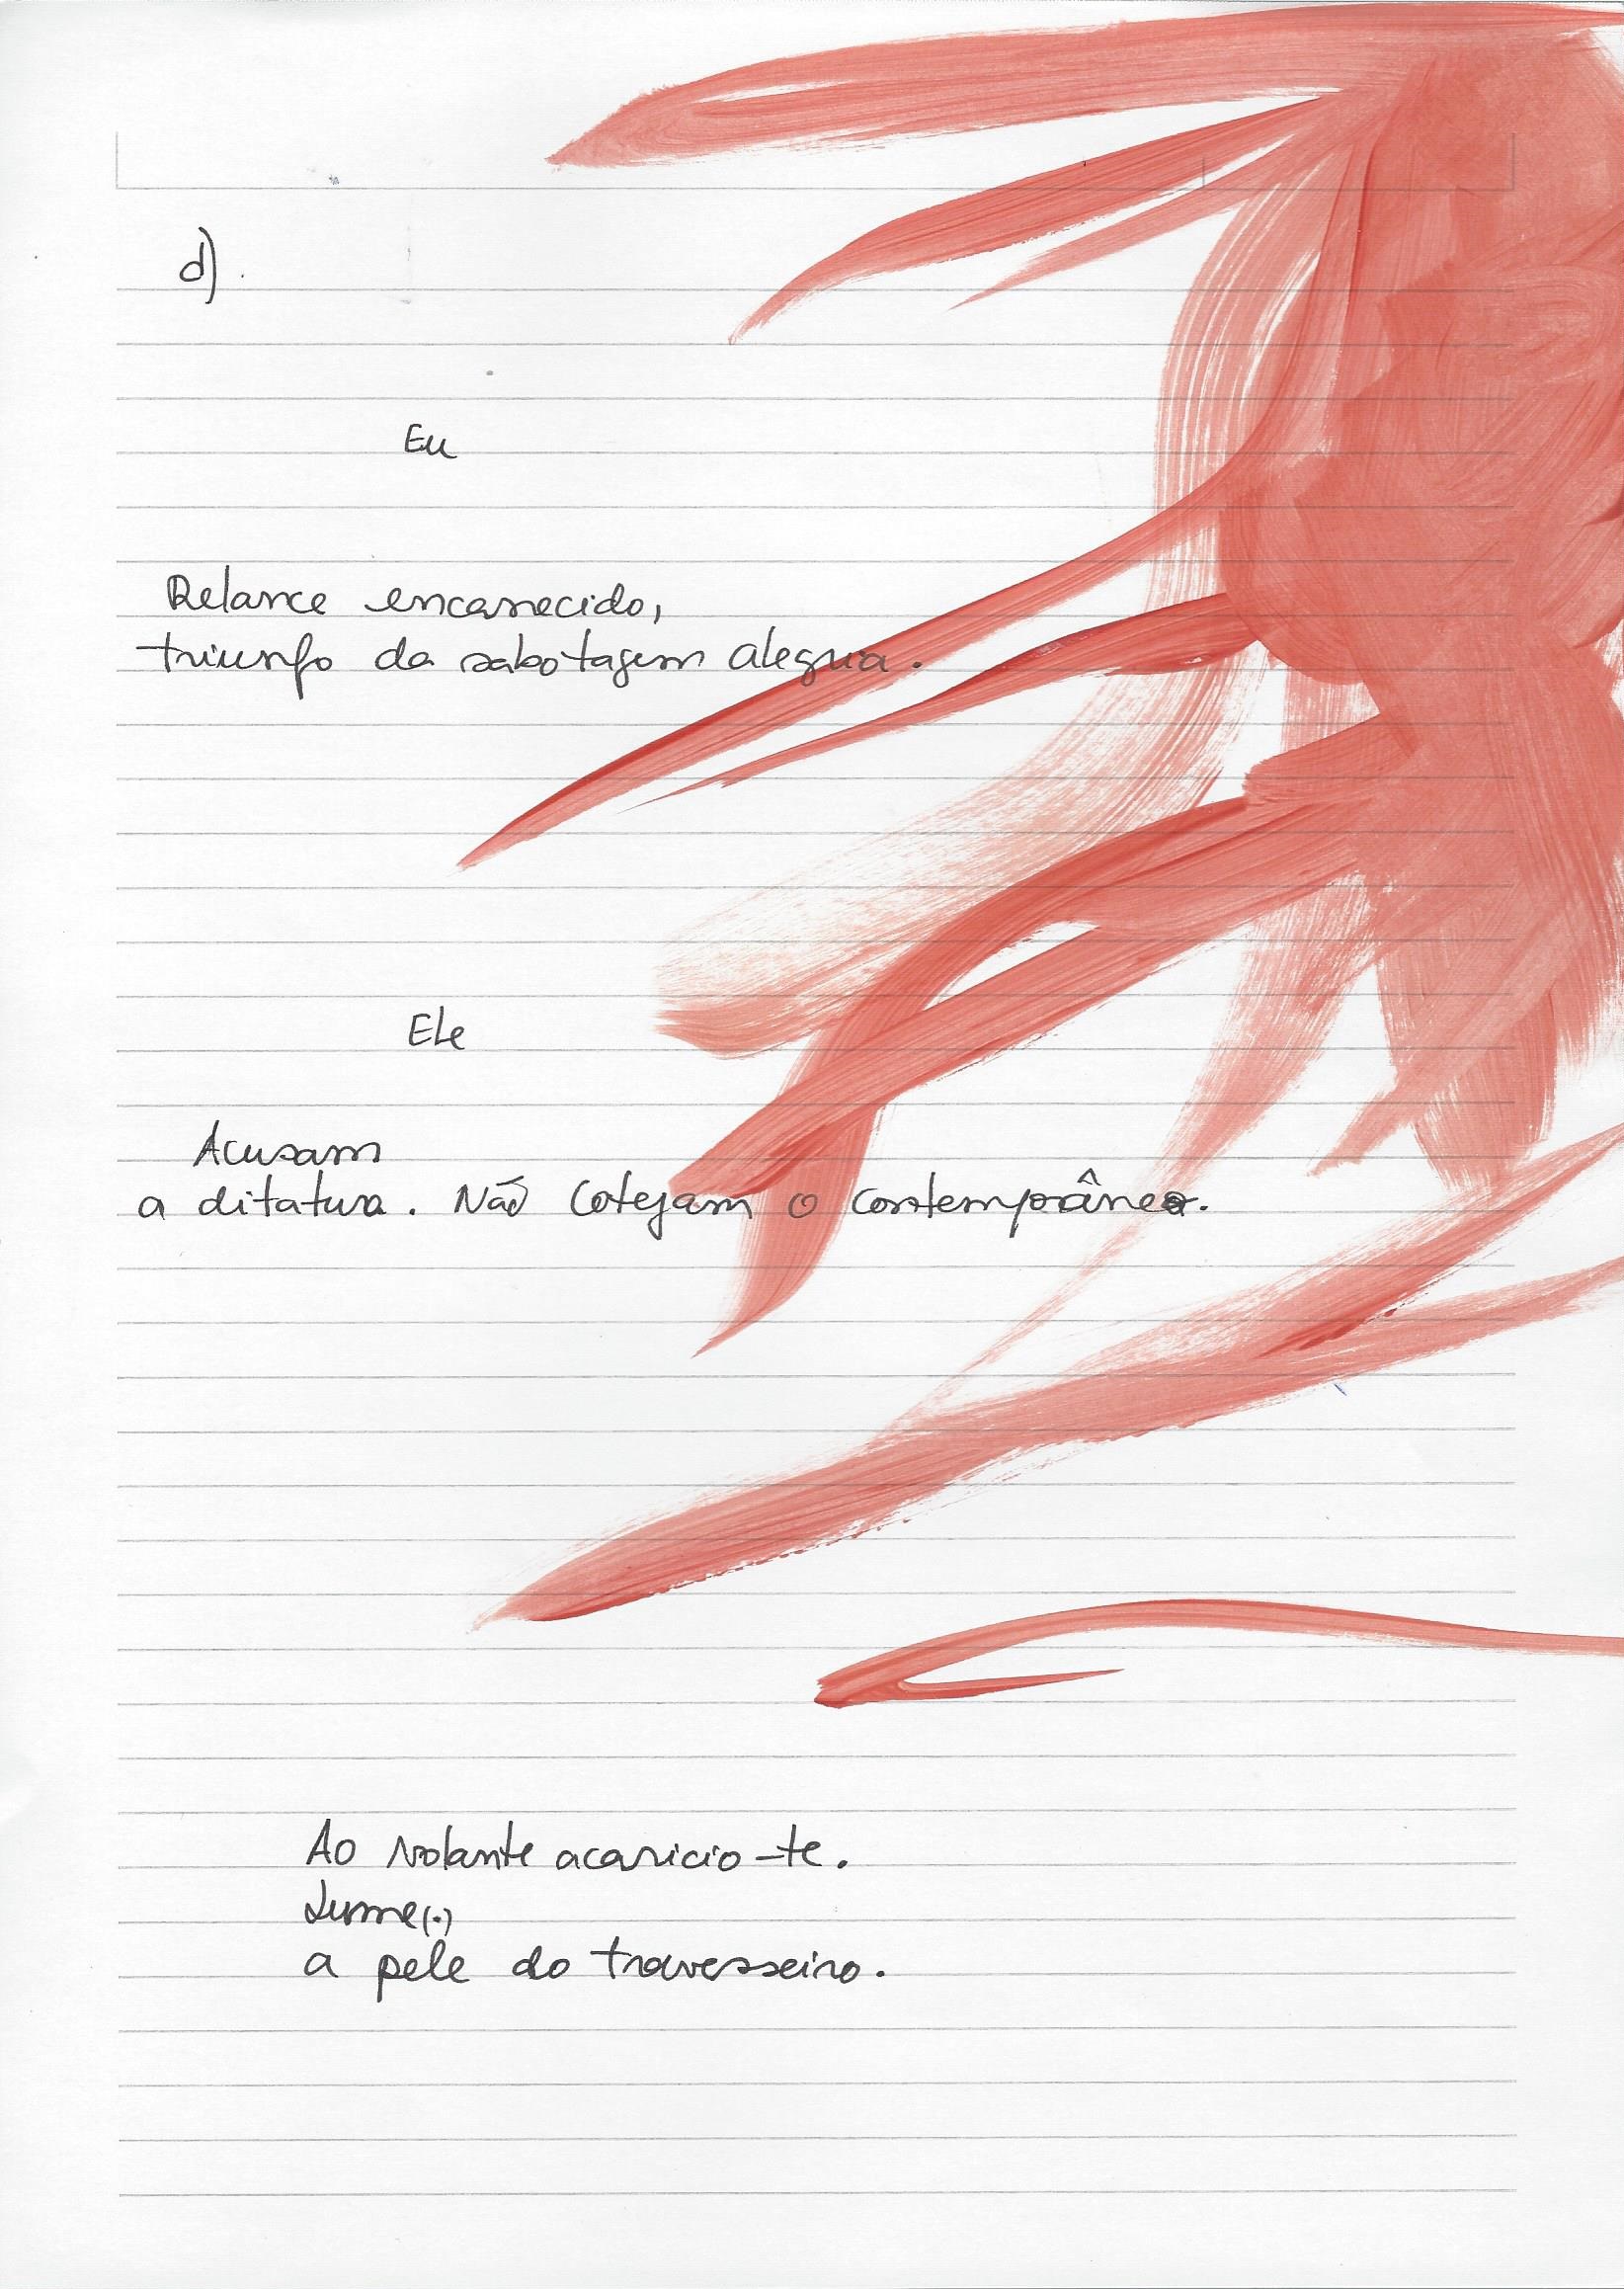 d).
Eu
Relance encanecido,
triunfo da sabotagem alegria.
Ele
Acusam
a ditatura. Não Cotejam o contemporâneo.
Ao volante acaricio-te.
Lume(.)
a pele do travesseiro.